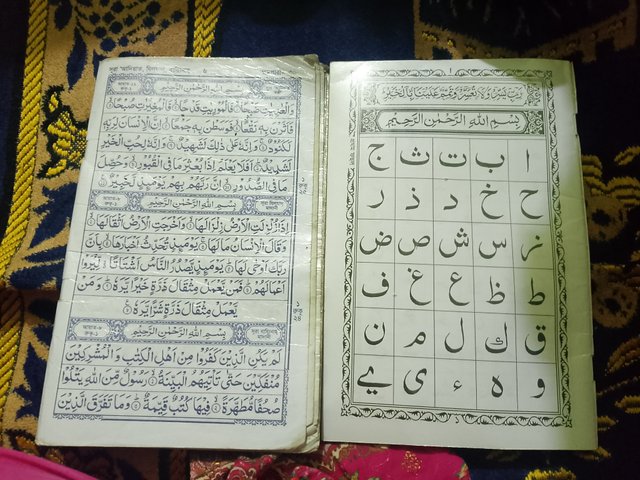 رَبِّ يَسِّرْ وَلَا تُعَسِّرْ وَتَمِّمْ عَلَيْنَا بِالْخَيْرِ
بِسْمِ اللهِ الرَّحْمٰنِ الرَّحِيْمِ
ا ب ت ث ج
ح خ د ذ ر
ز س ش ص ض
ط ظ ع غ ف
ق ك ل م ن
و ه ء ى ي
بِسْمِ اللهِ الرَّحْمٰنِ الرَّحِيْمِ
وَالْعٰدِيٰتِ ضَبْحًا فَالْمُوْرِيٰتِ قَدْحًا فَالْمُغِيْرٰتِ صُبْحًا
فَاَثَرْنَ بِهٖ نَقْعًا فَوَسَطْنَ بِهٖ جَمْعًا اِنَّ الْاِنْسَانَ لِرَبِّهٖ
لَكَنُوْدٌ وَاِنَّهٗ عَلٰى ذٰلِكَ لَشَهِيْدٌ وَاِنَّهٗ لِحُبِّ الْخَيْرِ
لَشَدِيْدٌ اَفَلَا يَعْلَمُ اِذَا بُعْثِرَ مَا فِى الْقُبُوْرِ وَحُصِّلَ
مَا فِى الصُّدُوْرِ اِنَّ رَبَّهُمْ بِهِمْ يَوْمَئِذٍ لَّخَبِيْرٌ
بِسْمِ اللهِ الرَّحْمٰنِ الرَّحِيْمِ
اِذَا زُلْزِلَتِ الْاَرْضُ زِلْزَالَهَا وَاَخْرَجَتِ الْاَرْضُ اَثْقَالَهَا
وَقَالَ الْاِنْسَانُ مَا لَهَا يَوْمَئِذٍ تُحَدِّثُ اَخْبَارَهَا بِاَنَّ
رَبَّكَ اَوْحٰى لَهَا يَوْمَئِذٍ يَّصْدُرُ النَّاسُ اَشْتَاتًا لِّيُرَوْا
اَعْمَالَهُمْ فَمَنْ يَّعْمَلْ مِثْقَالَ ذَرَّةٍ خَيْرًا يَّرَهٗ وَمَنْ
يَّعْمَلْ مِثْقَالَ ذَرَّةٍ شَرًّا يَّرَهٗ
بِسْمِ اللهِ الرَّحْمٰنِ الرَّحِيْمِ
لَمْ يَكُنِ الَّذِيْنَ كَفَرُوْا مِنْ اَهْلِ الْكِتٰبِ وَالْمُشْرِكِيْنَ
مُنْفَكِّيْنَ حَتّٰى تَاْتِيَهُمُ الْبَيِّنَةُ رَسُوْلٌ مِّنَ اللهِ يَتْلُوْا
صُحُفًا مُّطَهَّرَةً فِيْهَا كُتُبٌ قَيِّمَةٌ وَمَا تَفَرَّقَ الَّذِيْنَ